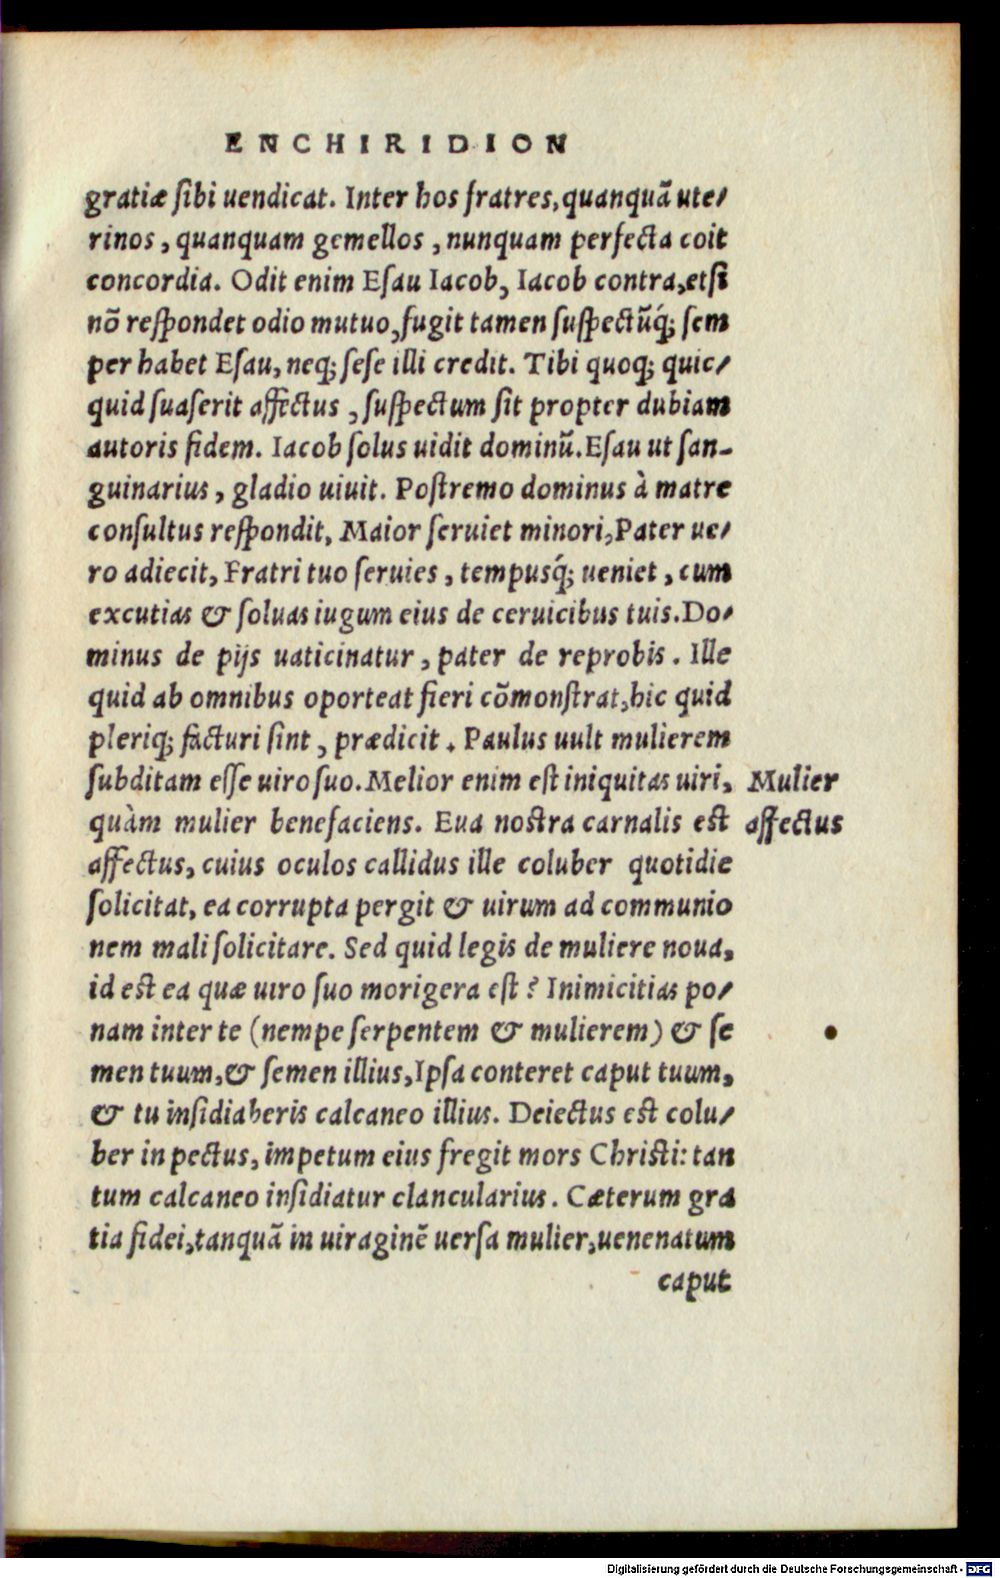 ENCHIRIDION
gratiæ ſibi uendicat. Inter hos fratres, quanquã ute/
rinos, quanquam gemellos, nunquam perfecta coit
concordia. Odit enim Eſau Iacob, Iacob contra, etſi
nõ reſpondet odio mutuo, fugit tamen ſuſpectũq́; ſem
per habet Eſau, neq; ſeſe illi credit. Tibi quoq; quic/
quid ſuaſerit affectus, ſuſpectum ſit propter dubiam
autoris fidem. Iacob ſolus uidit dominũ. Eſau ut ſan-
guinarius, gladio uiuit. Poſtremo dominus à matre
conſultus reſpondit, Maior ſeruiet minori, Pater ue/
ro adiecit, Fratri tuo ſeruies, tempusq́; ueniet, cum
excutias & ſoluas iugum eius de ceruicibus tuis. Do/
minus de pijs uaticinatur, pater de reprobis. Ille
quid ab omnibus oporteat fieri cõmonſtrat, hic quid
pleriq; facturi ſint, prædicit. Paulus uult mulierem
ſubditam eſſe uiro ſuo. Melior enim eſt iniquitas uiri,
Mulier
quàm mulier benefaciens. Eua noſtra carnalis eſt
affectus
affectus, cuius oculos callidus ille coluber quotidie
ſolicitat, ea corrupta pergit & uirum ad communio
nem mali ſolicitare. Sed quid legis de muliere noua,
id eſt ea quæ uiro ſuo morigera eſt? Inimicitias po/
nam inter te (nempe ſerpentem & mulierem) & ſe
men tuum, & ſemen illius, Ipſa conteret caput tuum,
& tu inſidiaberis calcaneo illius. Deiectus eſt colu/
ber in pectus, impetum eius fregit mors Chriſti: tan
tum calcaneo inſidiatur clancularius. Cæterum gra
tia fidei, tanquã in uiraginẽ uerſa mulier, uenenatum
caput
Digitalisierung gefördert durch die Deutsche Forschungsgemeinschaft - DFG